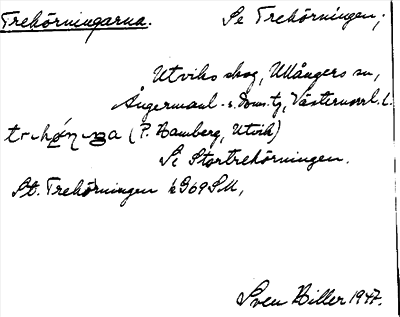 Trehörningarna. Se Trehörningen;
Utviks skog, Ullångers sn,
Ångermanl. s. Doms. tg, Västernorrl. l.
(P. Hamberg, Utvik)
Se Stortrehörningen.
St. Trehörningen k 969 SM,
Sven Biller 1947.